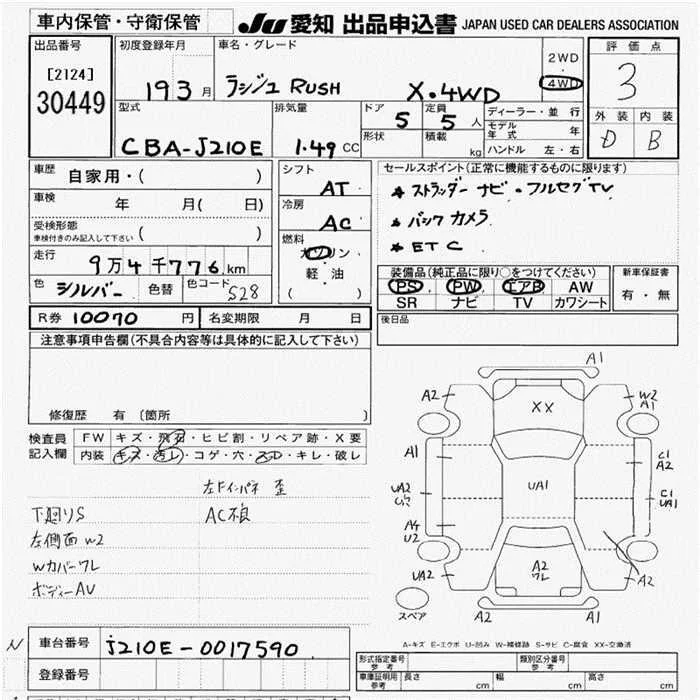 車内保管・守衛保管
JU 愛知 出品申込書 JAPAN USED CAR DEALERS ASSOCIATION
出品番号
[2124]
30449
初度登録年月
193月
車名・グレード
ラッシュ RUSH X・4WD
2WD
・
4WD
評価点
3
外装 内装
D B
型式
CBA-J210E
排気量
1.49 CC
ドア
5
定員
5 人
形状
積載
kg
ディーラー・並行
モデル年式 年
ハンドル 左・右
車歴
自家用・( )
車検
年 月( 日)
受検形態
車検付きのみ記入して下さい ( )
走行
9万4千776km
色
シルバー
色替
色コード
S28
シフト
AT
冷房
AC
燃料
ガソリン
軽・油
( )
セールスポイント(正常に機能するものに限ります)
★ ストラッダー ナビ・フルセグTV
★ バック カメラ
★ ETC
装備品(純正品に限り○をつけてください)
PS PW エアB AW
SR ナビ TV カワシート
新車保証書
有・無
R券 10070 円
名変期限 月 日
後日品
注意事項申告欄(不具合内容等は具体的に記入して下さい)
修復歴 有 [箇所 ]
検査員
記入欄
FW キズ・飛石・ヒビ割・リペア跡・X要
内装 キズ・汚レ・コゲ・穴・スレ・キレ・破レ
左Fインパネ 歪
下廻りS AC不良
左側面 W2
Wカバーワレ
ボディーAV
A1
A2
XX
W2
A1
A1
C1
A2
UA2
UA1
C1
UA1
A4
U2
UA2
A2
ワレ
A2
A2
A1
スペア
A-キズ E-エクボ U-凹み W-補修跡 S-サビ C-腐食 XX-交換済
N
車台番号 J210E-0017590
登録番号
形式指定番号
参考
類別区分番号
参考
車庫証明用
参考
長さ cm
幅 cm
高さ cm